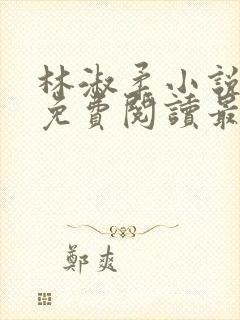 林淑柔小說
免費閱讀最
鄭爽